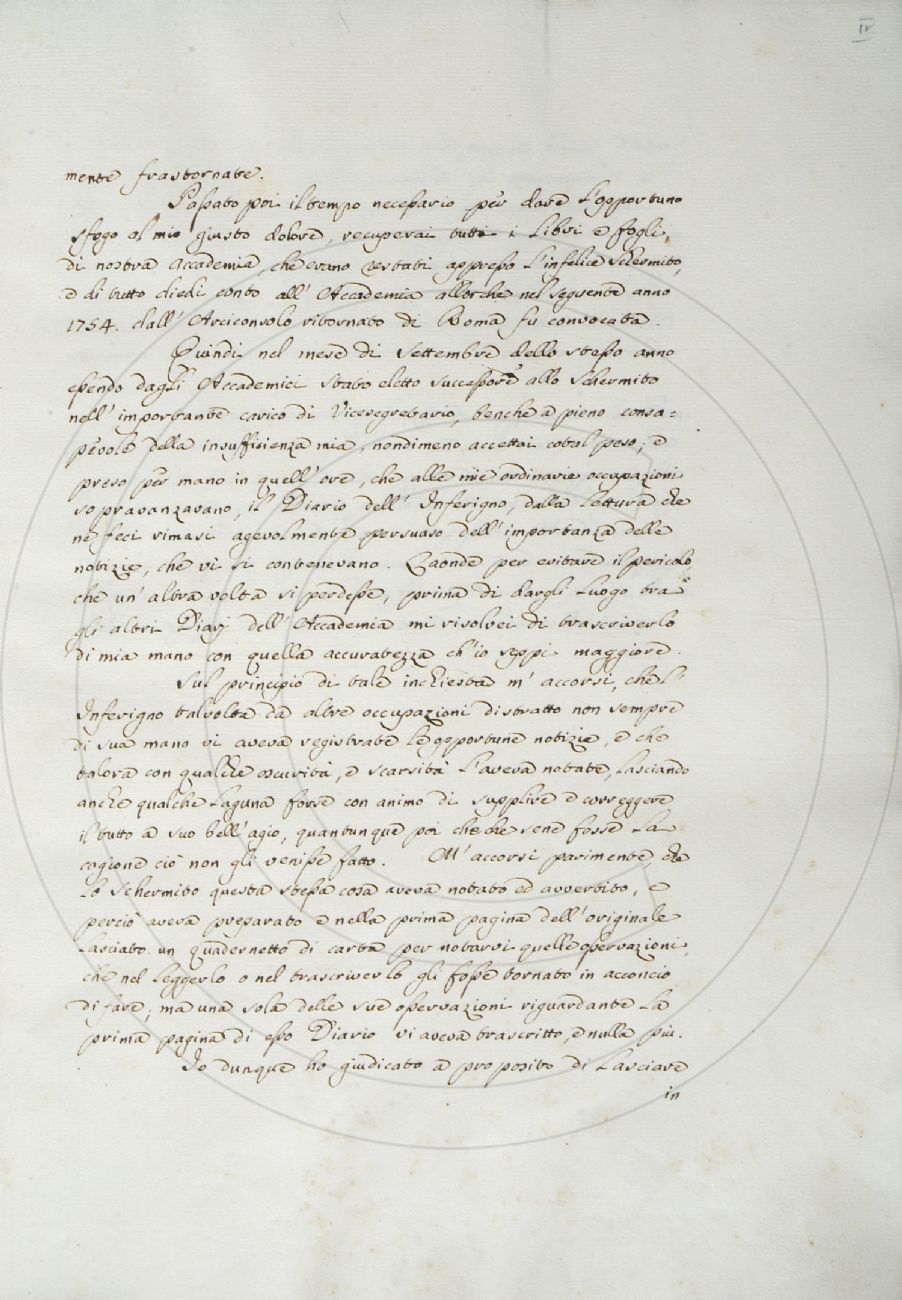 IV
mente frastornate.
Passato poi il tempo necessario per dare l'opportuno
sfogo al mio giusto dolore, recuperai tutti i Libri e fogli,
di nostra Accademia, che erano restati appresso l'infelice Schermito,
e di tutto diedi conto all' Accademia allorchè nel seguente anno
1754. dall' Arciconsolo ritornato di Roma fu convocata.
Quindi nel mese di Settembre dello stesso anno
essendo dagli Accademici stato eletto successore allo Schermito
nell' importante carico di Vicesegretario, benche a pieno consa=
pevole della insufficienza mia, nondimeno accettai cotal peso; e
preso per mano in quell' ore, che alle mie ordinarie occupazioni
sopravanzavano, il Diario dell' Inferigno, dalla lettura che
ne feci rimasi agevolmente persuaso dell' importanza delle
notizie, che vi si contenevano. Laonde per evitare il pericolo
che un' altra volta si perdesse, prima di dargli luogo tra
gli altri Diarj dell' Accademia mi risolvei di trascriverlo
di mia mano con quella accuratezza ch' io seppi maggiore.
Sul principio di tale inchiesta m' accorsi, che l'
Inferigno talvolta da altre occupazioni distratto non sempre
di sua mano vi aveva registrate le opportune notizie, e che
talora con qualche oscurità, e scarsità l'aveva notate, lasciando
anche qualche laguna forse con animo di supplire e correggere
il tutto a suo bell' agio, quantunque poi che che sene fosse la
cagione ciò non gli venisse fatto. M' accorsi parimente che
lo Schermito questa stessa cosa aveva notato ed avvertito, e
perciò aveva preparato e nella prima pagina dell' originale
lasciato un quadernetto di carta per notarvi quelle osservazioni,
che nel leggerlo o nel trascriverlo gli fosse tornato in acconcio
di fare; ma una sola delle sue osservazioni riguardante la
prima pagina di esso Diario vi aveva trascritto, e nulla più.
Io dunque ho giudicato a proposito di lasciare
in